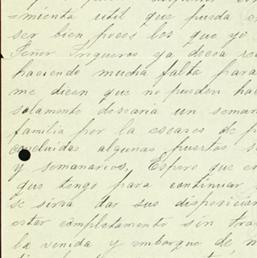 mienta util que pueda
ser bien pocos los que yo
Señor Ingueros ya decia
haciendo mucha falta para
me dicen que no pueden ha
solamente descaria un semana
familia por la escases de
concluidas algunas puertas
y semanarios. Espero que
que tengo para continuar
se sirva dar sus disposicion
estar completamente sin tra
la venida y embarque de